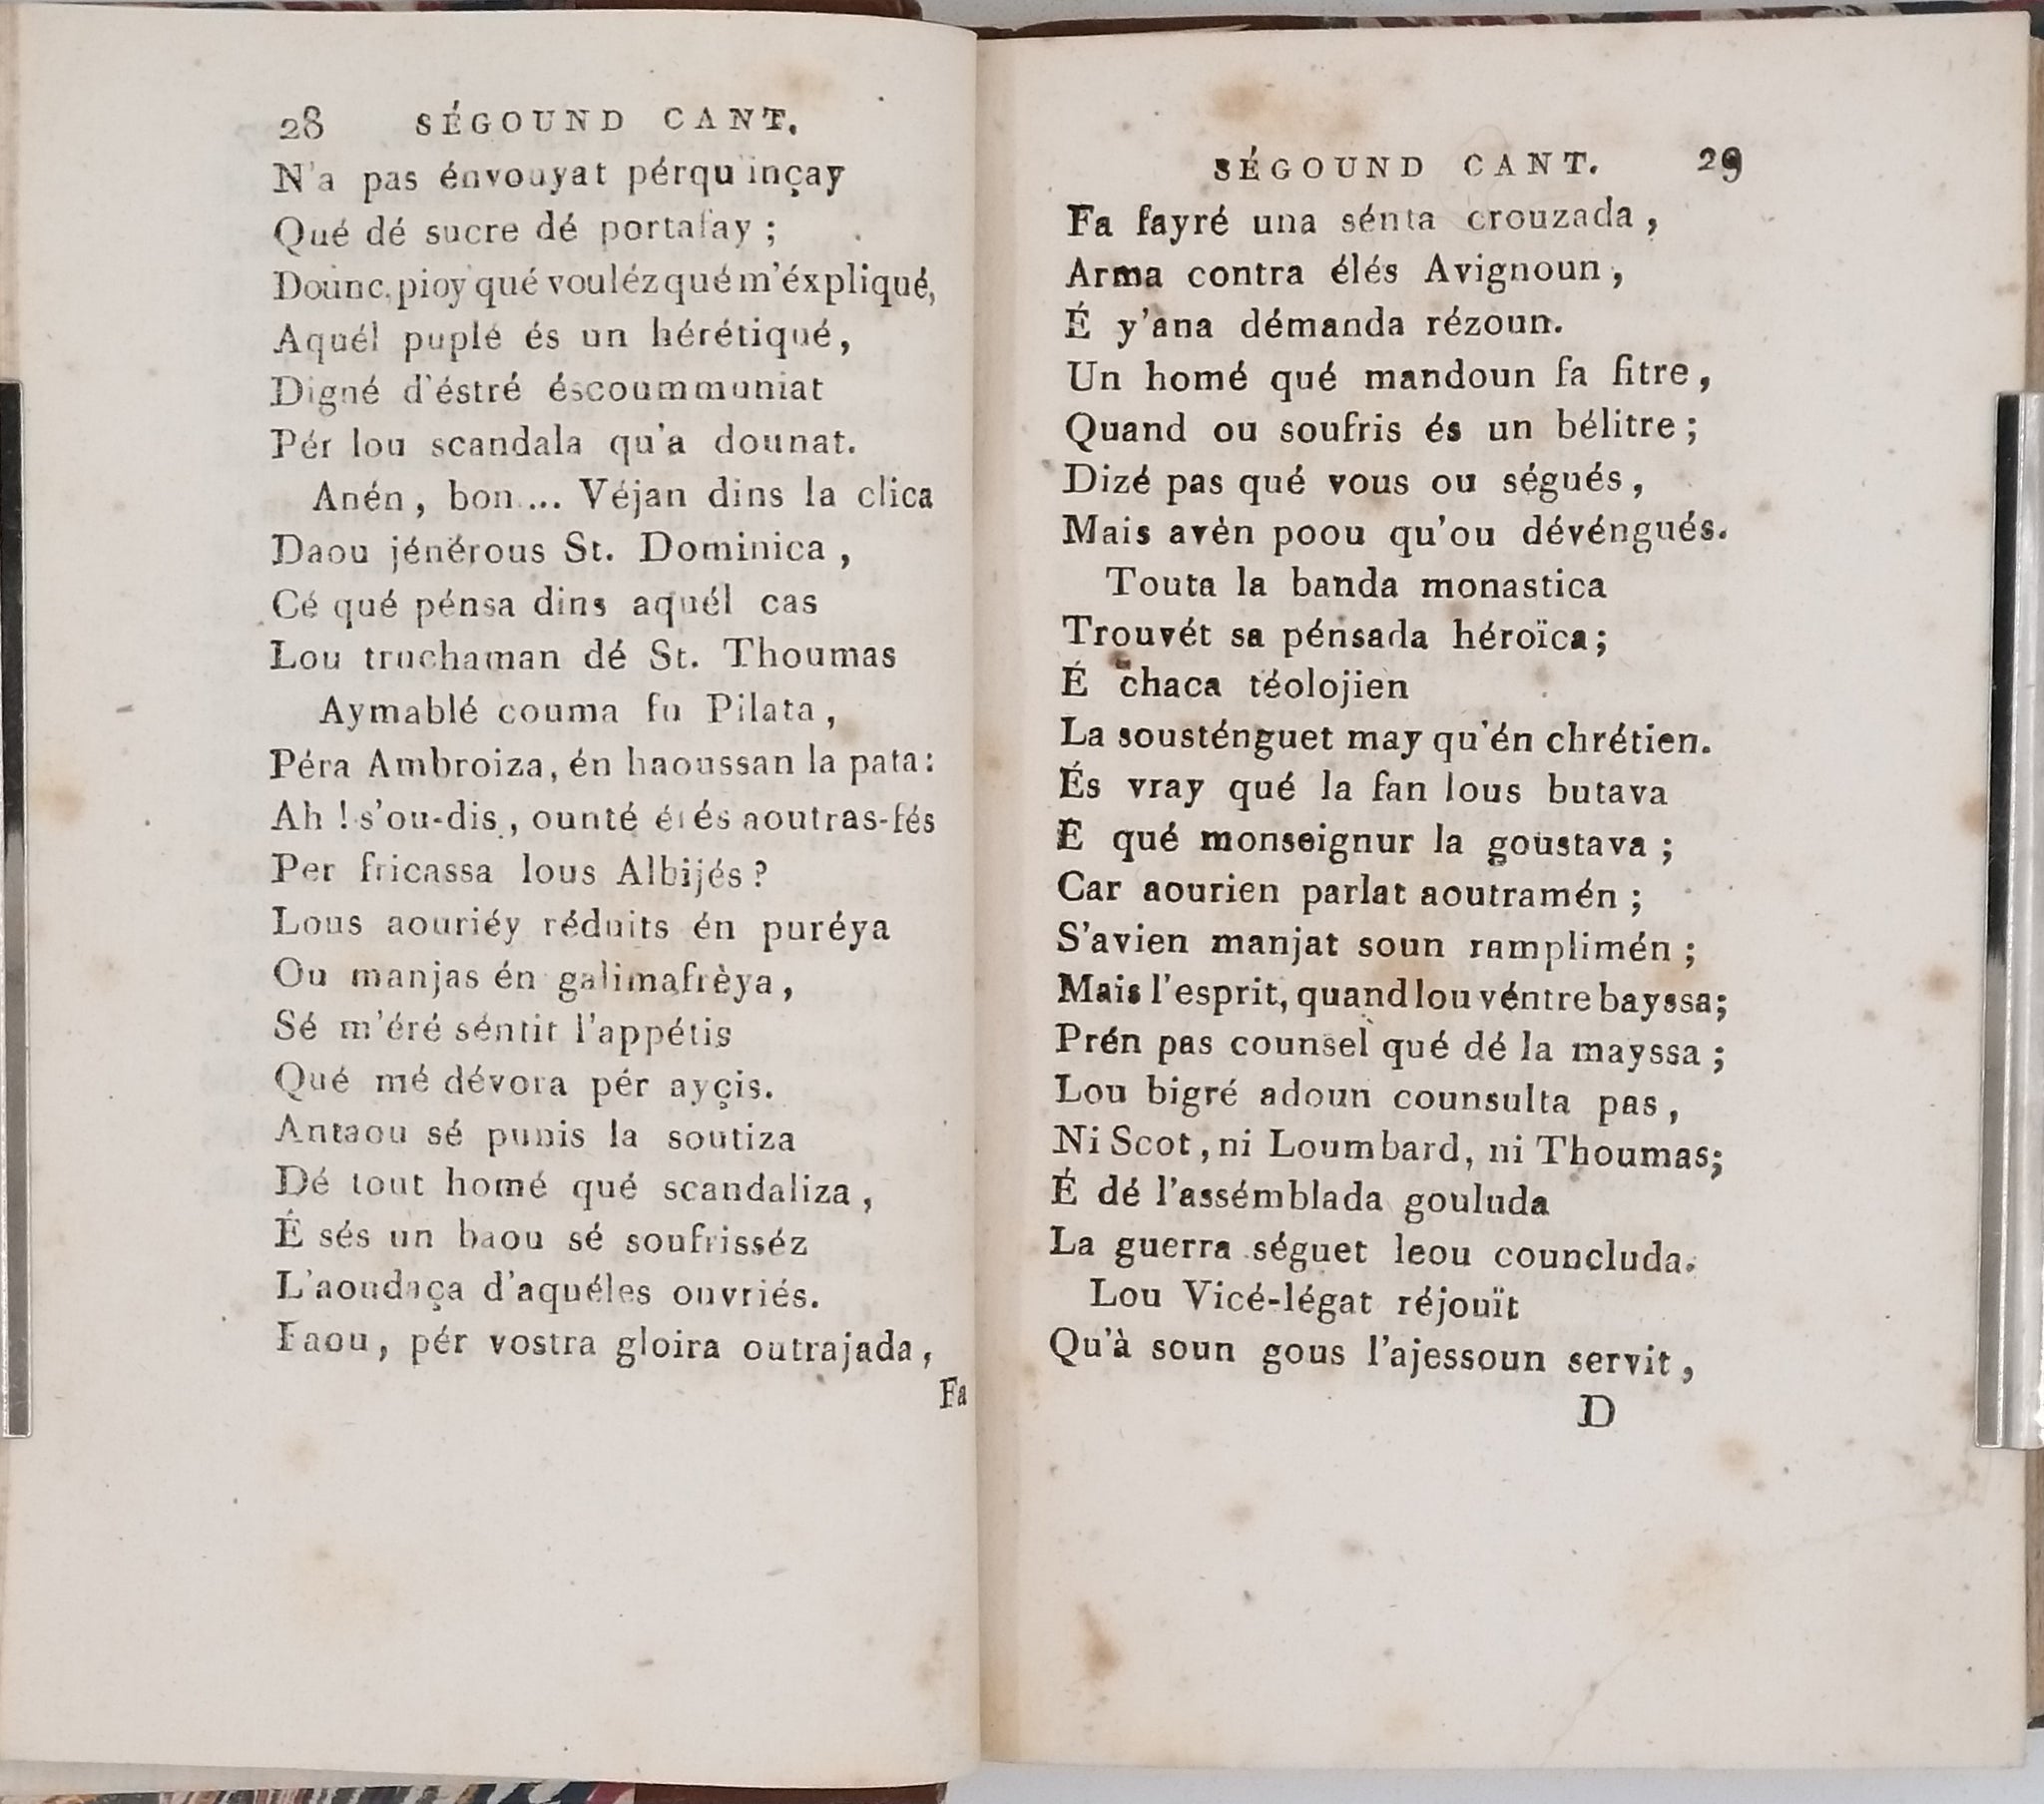 28 SÉGOUND CANT.
N'a pas énvouyat pérqu'inçay
Qué dé sucre dé portafay ;
Dounc, pioy qué vouléz qué m'éxpliqué,
Aquél puplé és un hérétiqué,
Digné d'éstré éscoummuniat
Pér lou scandala qu'a dounat.
Anén, bon.... Véjan dins la clica
Daou jénérous St. Dominica,
Cé qué pénsa dins aquél cas
Lou truchaman dé St. Thoumas
Aymablé couma fu Pilata,
Péra Ambroiza, én haoussan la pata:
Ah ! s'ou-dis, ounté érés aoutras-fés
Per fricassa lous Albijés ?
Lous aouriéy réduits én puréya
Ou manjas én galimafrèya,
Sé m'éré séntit l'appétis
Qué mé dévora pér ayçis.
Antaou sé punis la soutiza
Dé tout homé qué scandaliza,
É sés un baou sé soufrisséz
L'aoudaça d'aquéles ouvriés.
Faou, pér vostra gloira outrajada,
Fa
SÉGOUND CANT. 29
Fa fayré una sénta crouzada,
Arma contra élés Avignoun,
É y'ana démanda rézoun.
Un homé qué mandoun fa fitre,
Quand ou soufris és un bélitre ;
Dizé pas qué vous ou ségués,
Mais avèn poou qu'ou dévéngués.
Touta la banda monastica
Trouvét sa pénsada héroïca ;
É chaca téolojien
La sousténguet may qu'én chrétien.
És vray qué la fan lous butava
E qué monseignur la goustava ;
Car aourien parlat aoutramén ;
S'avien manjat soun ramplimén ;
Mais l'esprit, quand lou véntre bayssa ;
Prén pas counsel qué dé la mayssa ;
Lou bigré adoun counsulta pas,
Ni Scot, ni Loumbard, ni Thoumas ;
É dé l'assémblada gouluda
La guerra séguet leou councluda.
Lou Vicé-légat réjouït
Qu'à soun gous l'ajessoun servit,
D